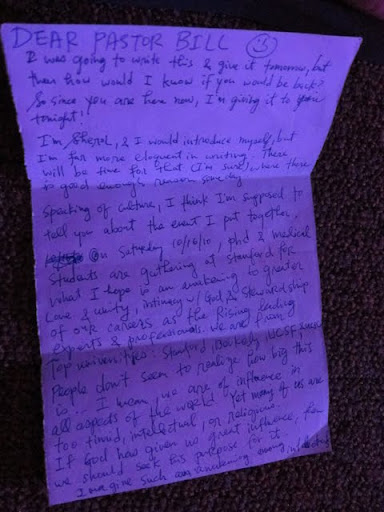 DEAR PASTOR BILL 3
I was going to write this & give it tomorrow, but
then how would I know if you would be back?
So since you are here now, I'm giving it to you
tonight!
I'm Sheral, & I would introduce myself, but
I'm far more eloquent in writing. There
will be time for that (I'm sure), where there
is good enough reason
Speaking of culture, I think I'm supposed to
tell you about the event I put together,
on Saturday 10/10/10, phd & medical
students are gathering at Stanford for
what I hope is an awakening to greater
Love & unity, intimacy w/ God & stewardship
of our careers as the Rising leading
experts & professionals. We are from
Top universities: Stanford, Berkeley, UCSF
People don't seem to realize how big this
is... I mean, we are of influence in
all aspects of the world. Yet many of us are
too timid, intellectual, or religious.
If God has given us great influence,
we should seek his purpose for it.
Imagine such an awakening among